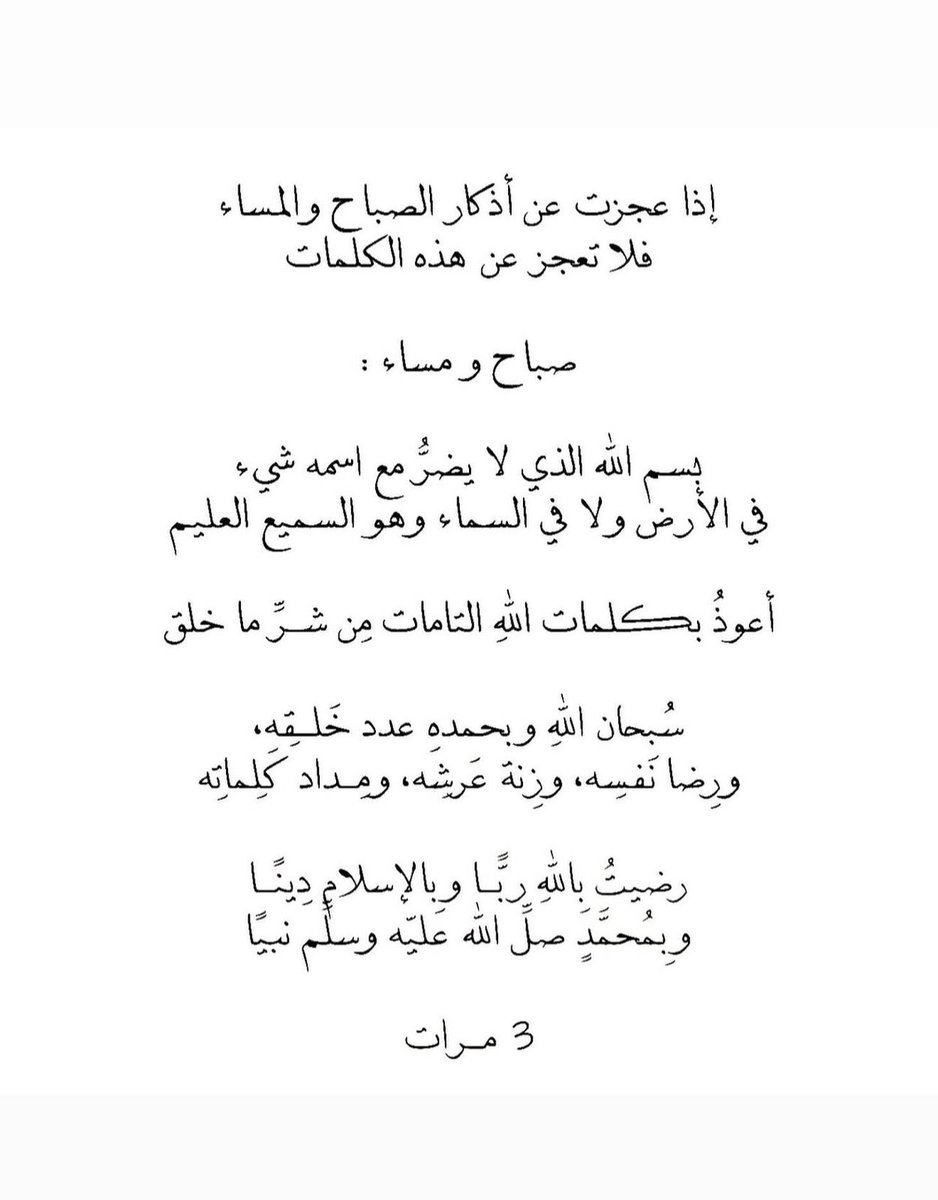 إذا عجزت عن أذكار الصباح والمساء
فلا تعجز عن هذه الكلمات
صباح و مساء :
بسم الله الذي لا يضرُّ مع اسمه شيء
في الأرض ولا في السماء وهو السميع العليم
أعوذُ بكلمات اللهِ التامات مِن شرِّ ما خلق
سُبحان اللهِ وبحمدهِ عدد خَلقِه،
ورِضا نَفسِه، وزِنة عَرشِه، ومِداد كَلِماتِه
رضيتُ بِاللهِ ربًّا وبِالإسلامِ دِينًا
وبِمُحمَّدٍ صلِّ الله عَليّه وسلَّم نبيًا
3 مرات